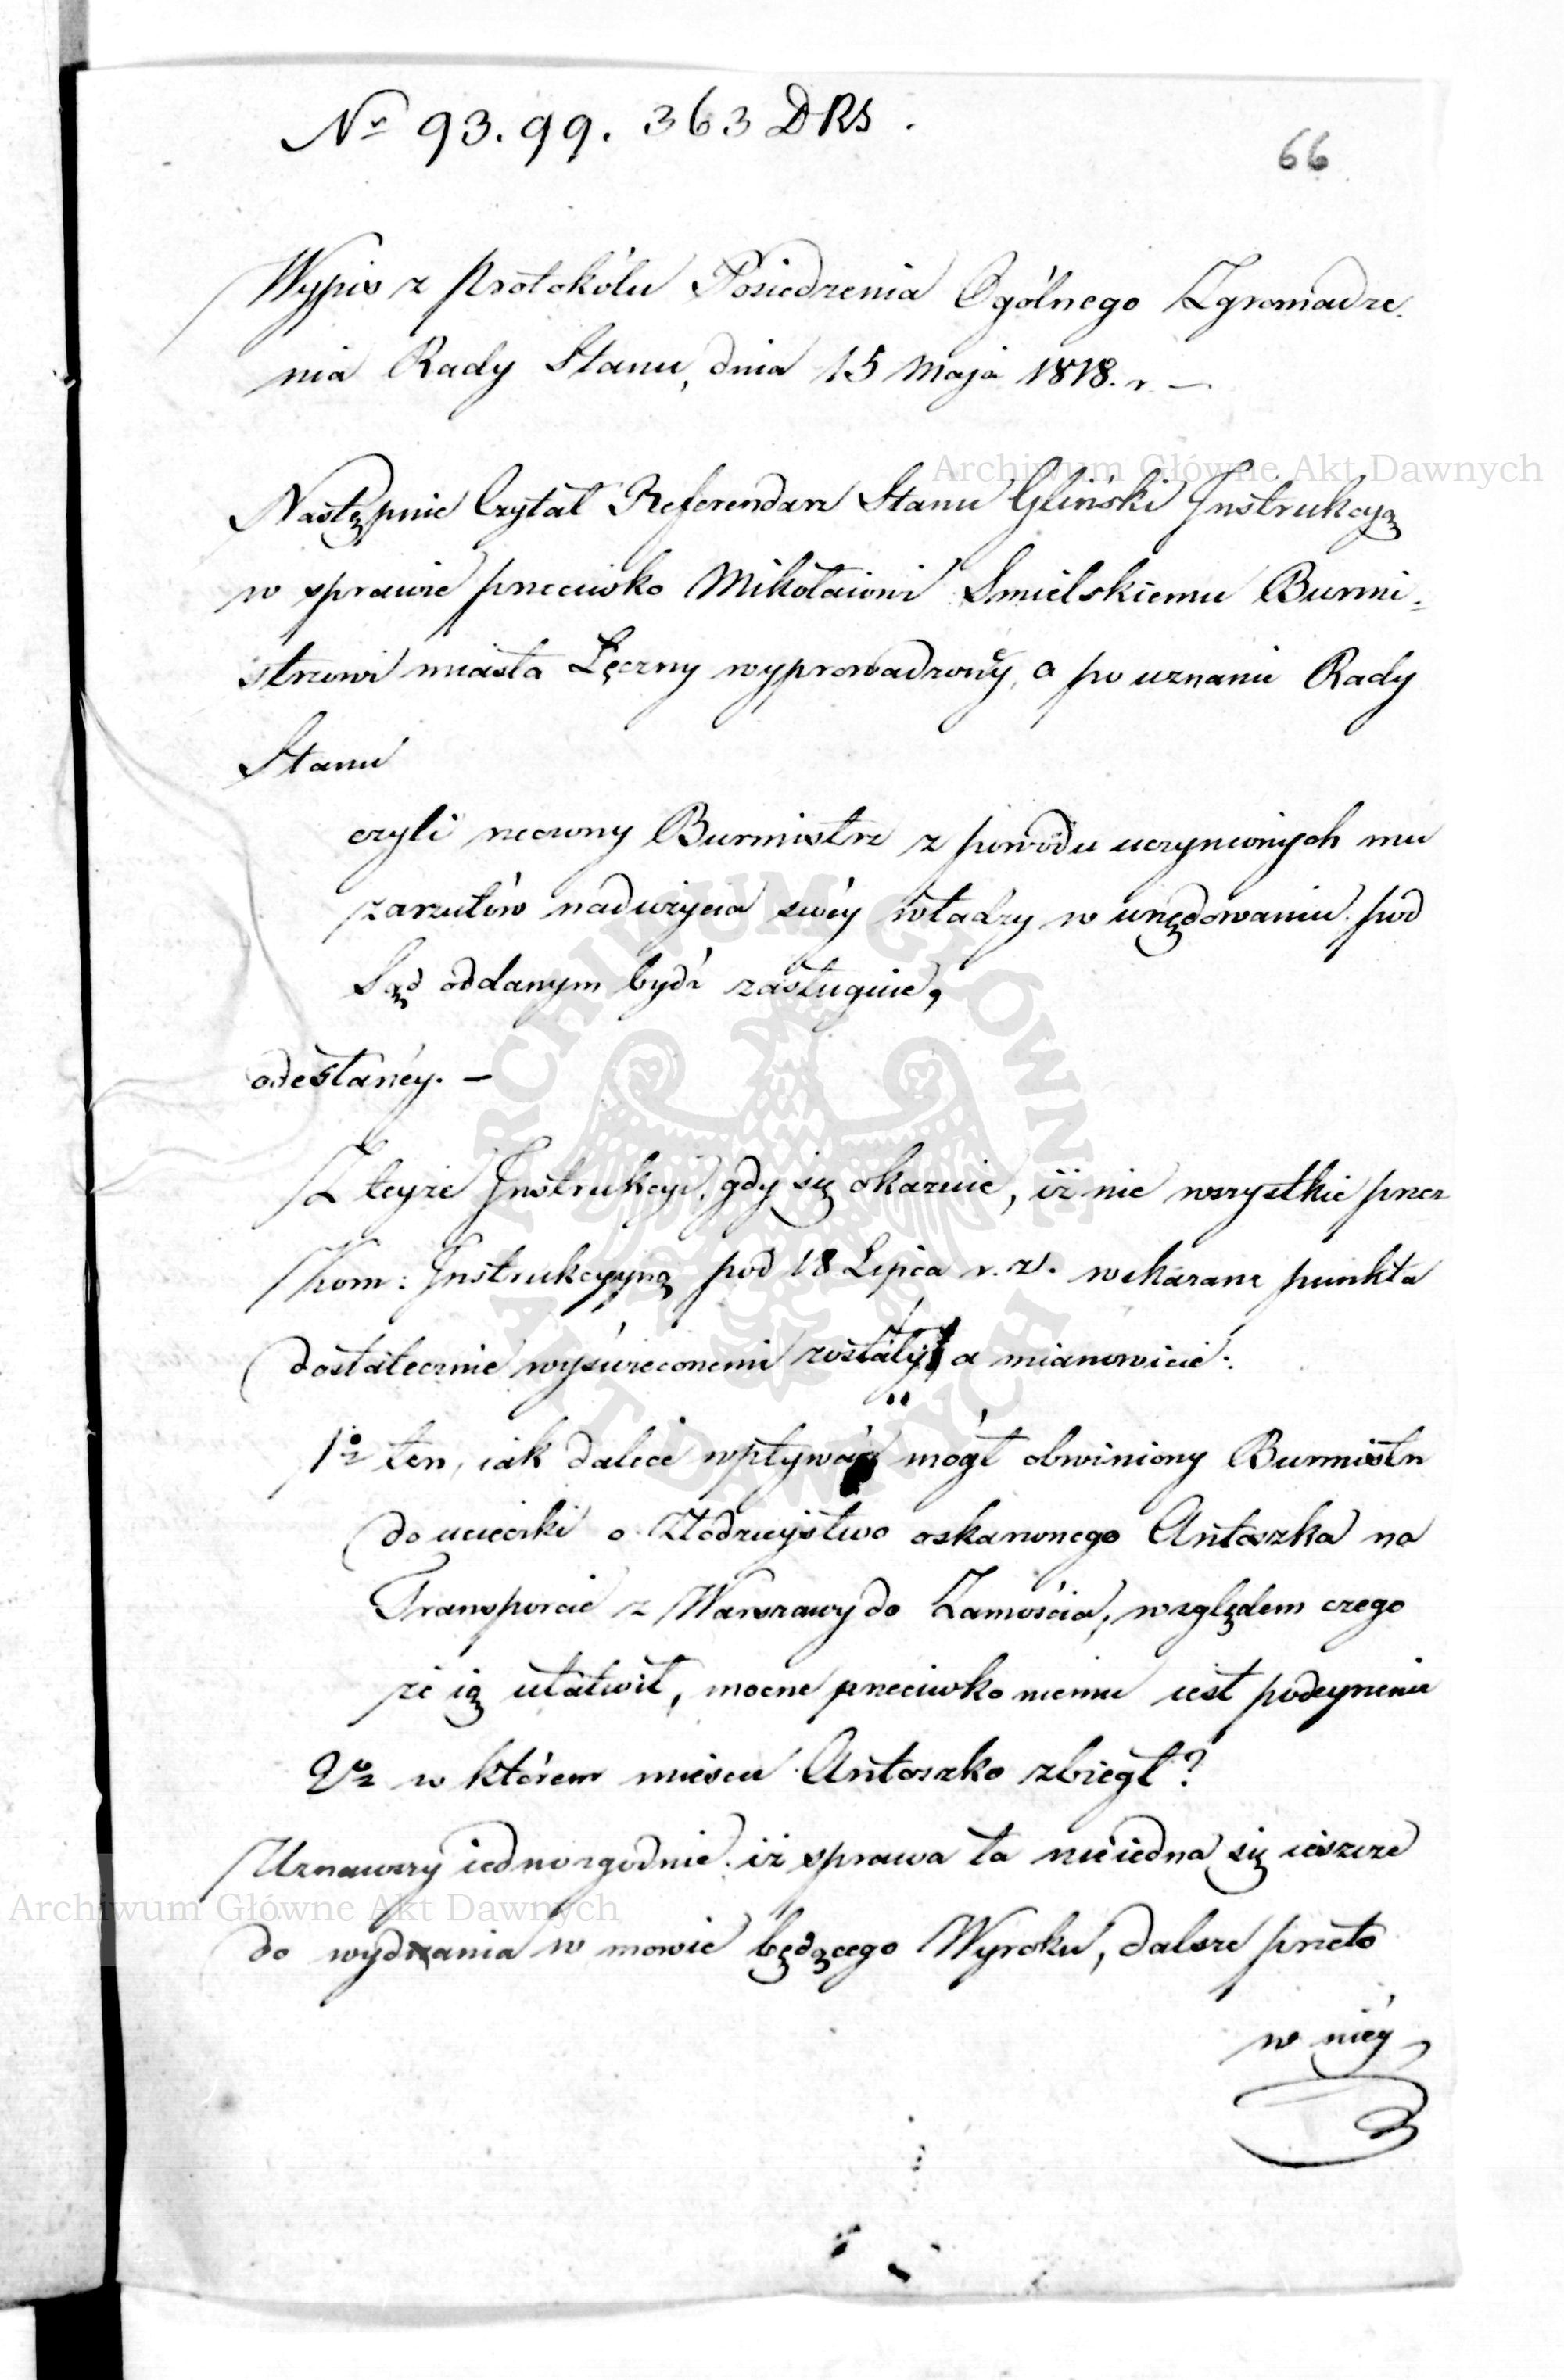 Nr 93. 99. 363 DRS.
66
Wypis z Protokólu Posiedzenia Ogólnego Zgromadze-
nia Rady Stanu, dnia 15 Maja 1818. r. —
Archiwum Główne Akt Dawnych
Następnie Czytał Referendarz Stanu Gliński Instrukcyą
w sprawie przeciwko Mikołaiowi Smielskiemu Burmi-
strzowi miasta Łęczny wyprowadzoney, a po uznaniu Rady
Stanu
czyli rzeczony Burmistrz z powodu uczynionych mu
zarzutów nadużycia swéy władzy w urzędowaniu pod
Sąd oddanym bydź zasługuie,
odesłanéy. —
Z teyże Instrukcyi, gdy się okazuie, iż nie wszystkie przez
Kom: Instrukcyyną pod 18 Lipca r. z. wskazane punkta
dostatecznie wyświeconemi zostały, a mianowicie:
1o ten, iak dalece wpływać mógł obwiniony Burmistrz
do ucieczki o Złodzieystwo oskarżonego Antoszka na
Transporcie z Warszawy do Zamościa, względem czego
że ią ułatwił, mocne przeciwko niemu iest podeyrzenie
2o w którem mieyscu Antoszko zbiegł?
Uznawszy iednozgodnie iż sprawa ta nieiedna się ieszcze
Archiwum Główne Akt Dawnych
do wydania w mowie będącego Wyroku, dalsze przeto
w niéy
ARCHIWUM GŁÓWNE AKT DAWNYCH